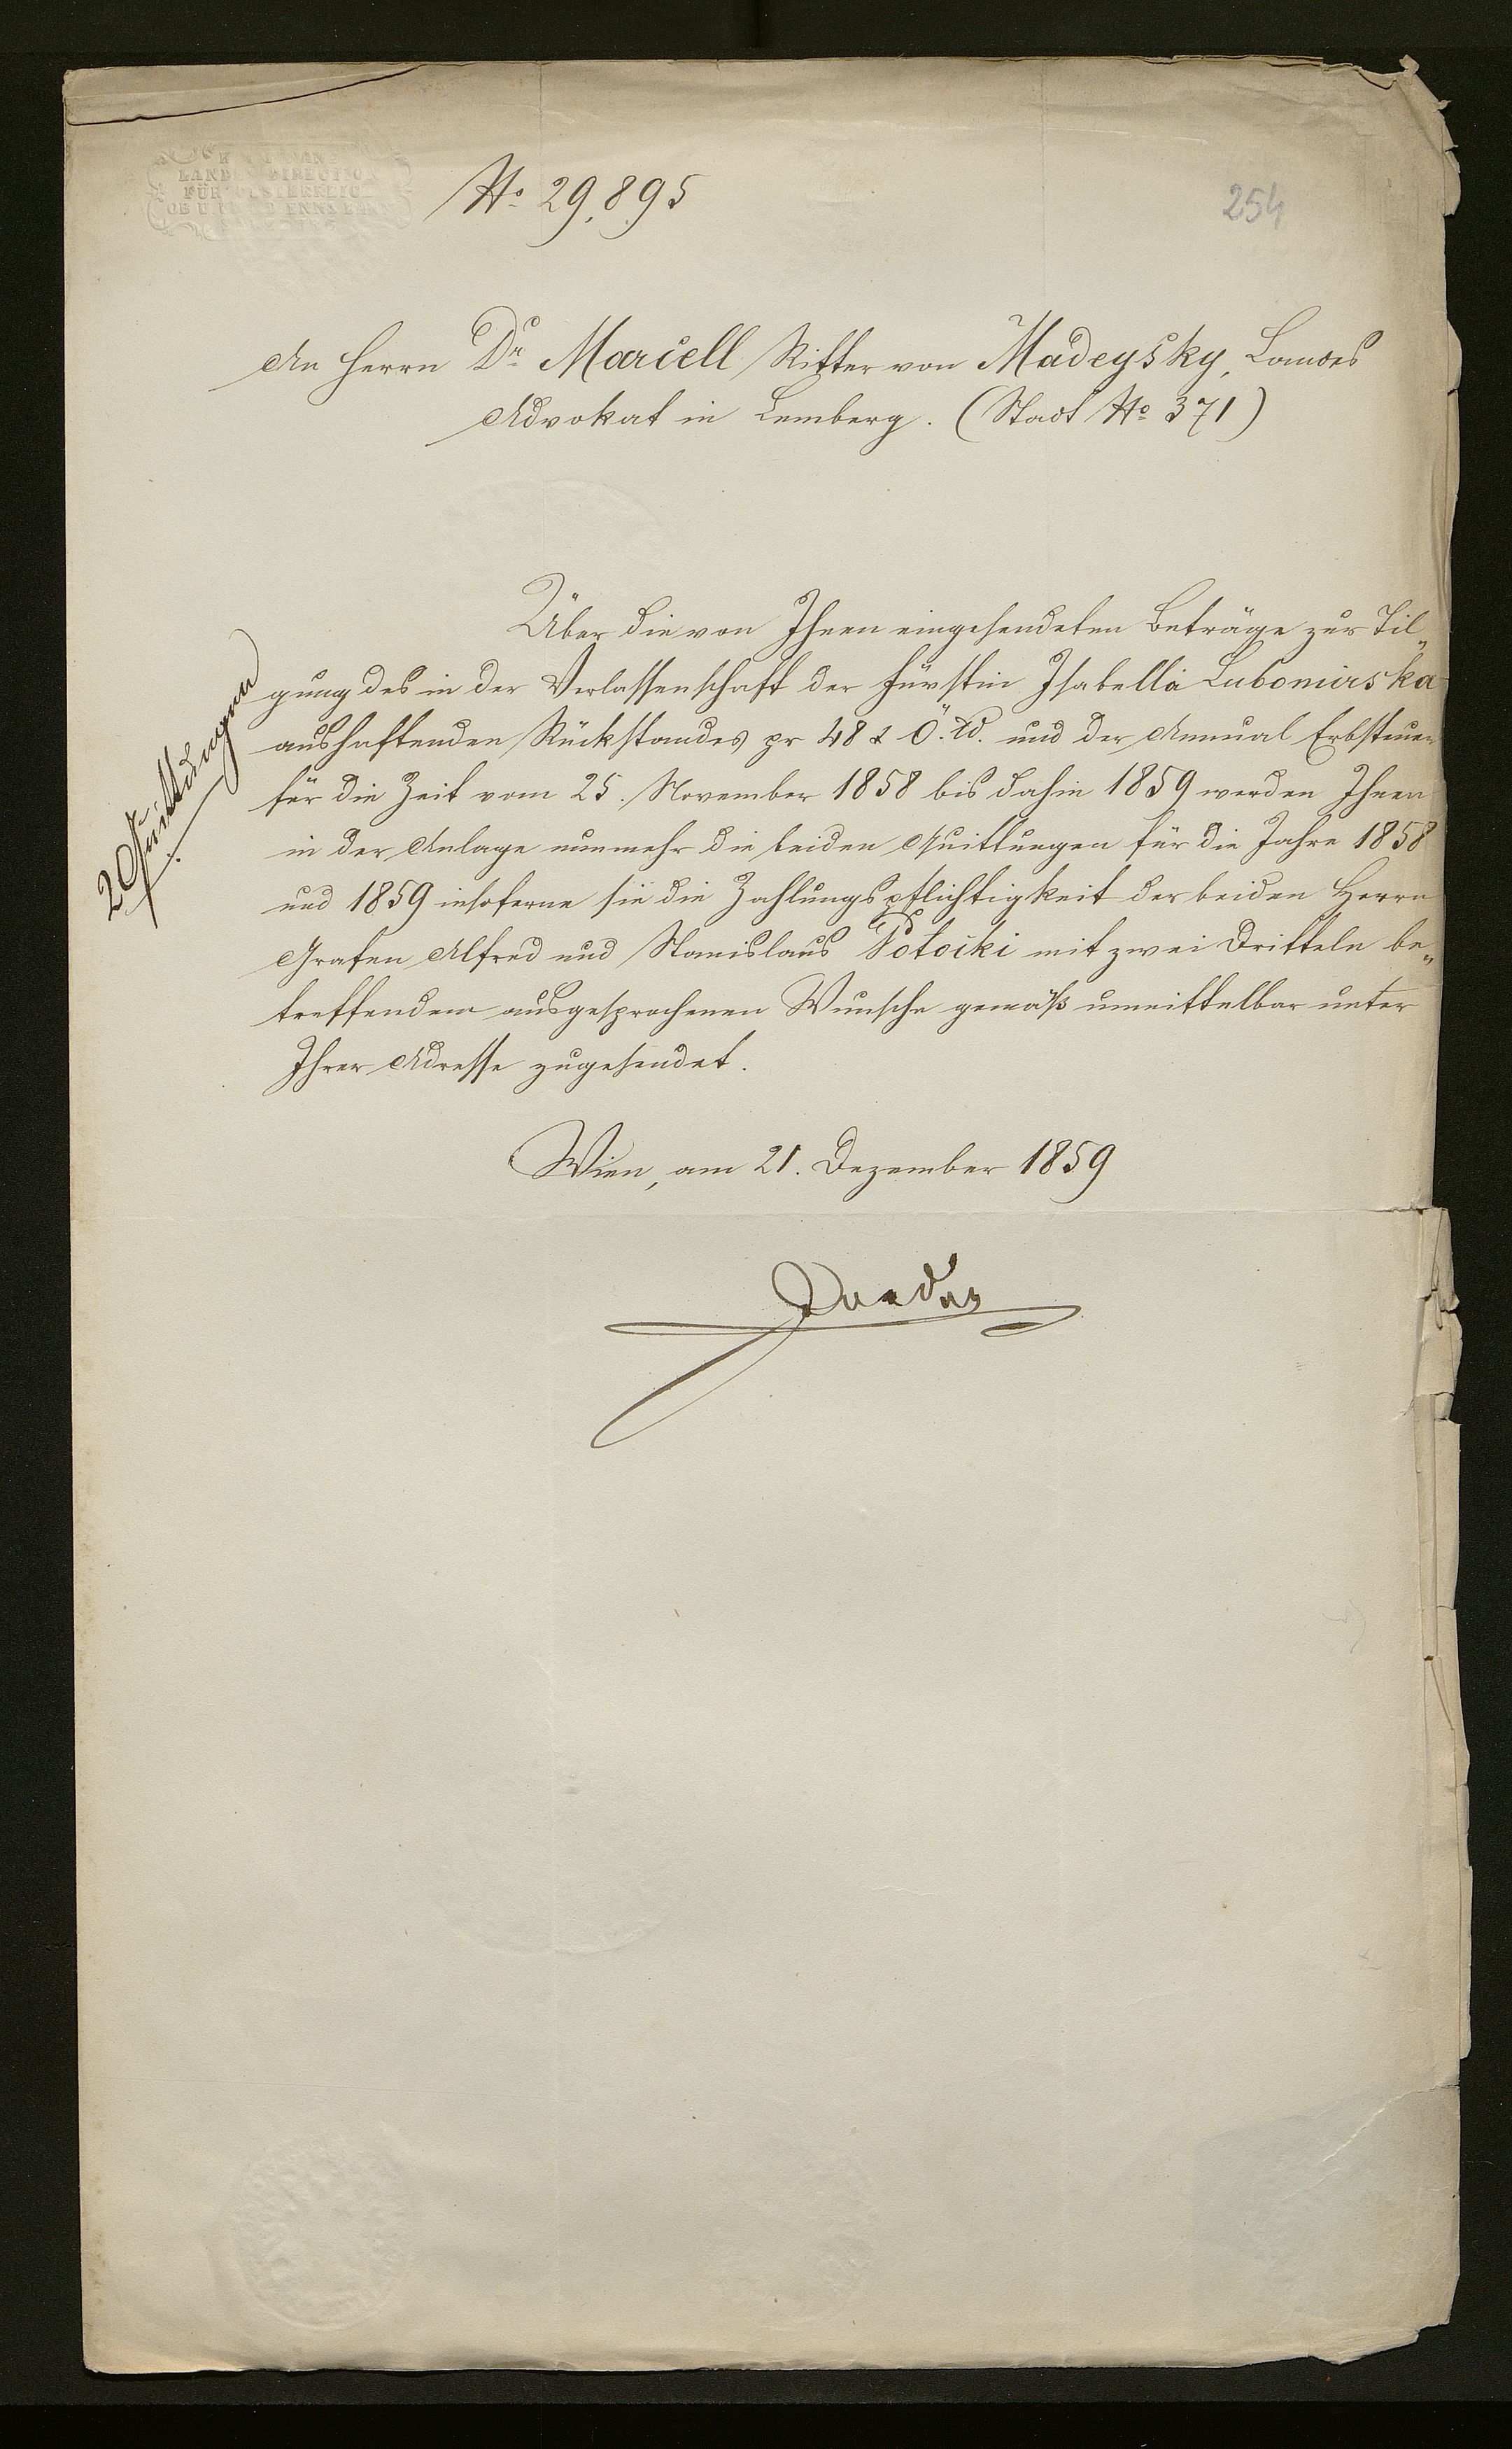 LANDES DIRECTION
FÜR OESTERREICH
OB U D ENNS
No 29,895
254
An Herrn Dr Marcell Ritter von Madeysky, Landes
Advokat in Lemberg. (Stadt No 371)
Über die von Ihnen eingesendeten Beträge zur Til„
gung des in der Verlassenschaft der Fürstin Isabella Lubomirska
aushaftenden Rückstandes pr 48 x Ö.W. und der Annual Erbsteuer
für die Zeit vom 25. November 1858 bis dahin 1859 werden Ihnen
in der Anlage nunmehr die beiden Quittungen für die Jahre 1858
und 1859 insoferne sie die Zahlungspflichtigkeit der beiden Herrn
Grafen Alfred und Stanislaus Potocki mit zwei Dritteln be„
treffen dem ausgesprochenen Wunsche gemäß unmittelbar unter
Ihrer Adresse zugesendet.
2 Quittungen
Wien, am 21. Dezember 1859